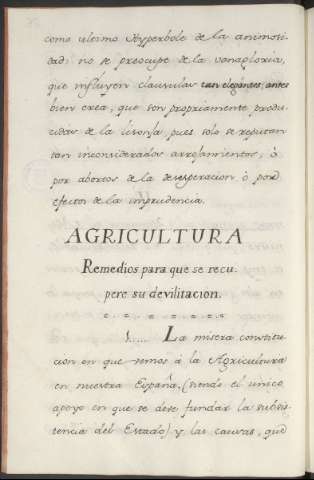 como ultimo Hyperbole de la animosi-
dad: no se preocupe de la vanagloria,
que influyen clausulas tan elegantes; antes
bien crea, que son propriamente produ-
cidas de la lisonja, pues solo se reputan
tan inconsiderados arrojamientos, ò
por abortos de la desesperacion ò por
efectos de la imprudencia.
AGRICULTURA
Remedios para que se recu-
pere su devilitacion.
1..... La misera constitu-
cion en que vemos á la Agricultura
en nuestra España, (siendo el unico
apoyo en que se debe fundar la subsis-
tencia del Estado) y las causas, que